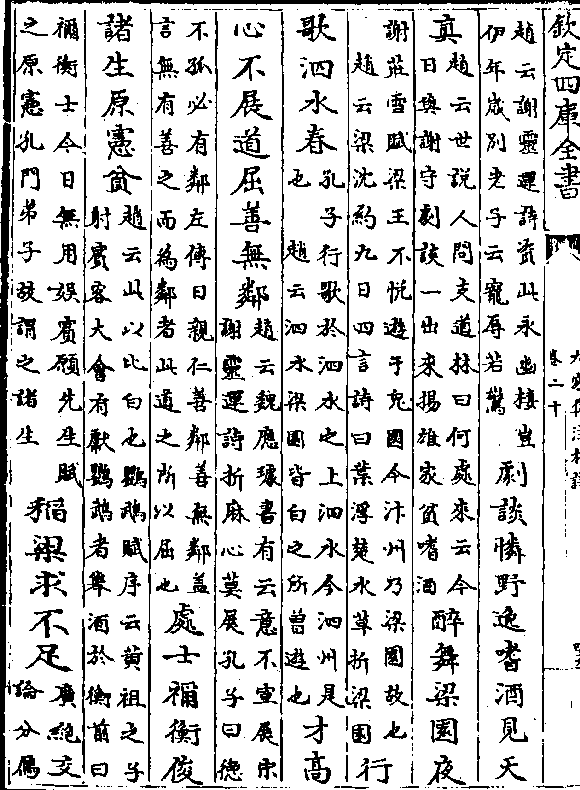 欽定四庫全書
卷二十
趙云謝靈運詩資此永幽棲豈
伊年歲別老子云寵辱若驚
劇談憐野逸嗜酒見天
真
趙云世說人問支道林曰何處來云今
日與謝守劇談一出來揚雄家貧嗜酒
醉舞梁園夜
謝莊雪賦梁王不悅遊于兔園今汴州乃梁園故也
趙云梁沈約九日四言詩曰葉浮楚水草折梁園
行
歌泗水春
孔子行歌於泗水之上泗水今泗州是
也 趙云泗水梁園皆白之所曾遊也
才高
心不展道屈善無鄰
趙云魏應璩書有云意不宣展宋
謝靈運詩折麻心莫展孔子曰德
不孤必有鄰左傳曰親仁善鄰善無鄰蓋
言無有善之而為鄰者此道之所以屈也
處士禰衡俊
諸生原憲貧
趙云此以比白也鸚鵡賦序云黃祖之子
射賓客大會有獻鸚鵡者舉酒於衡前曰
禰衡士今日無用娛賓願先生賦
之原憲孔門弟子故謂之諸生
稻粱求不足
廣絕交
論分鴈